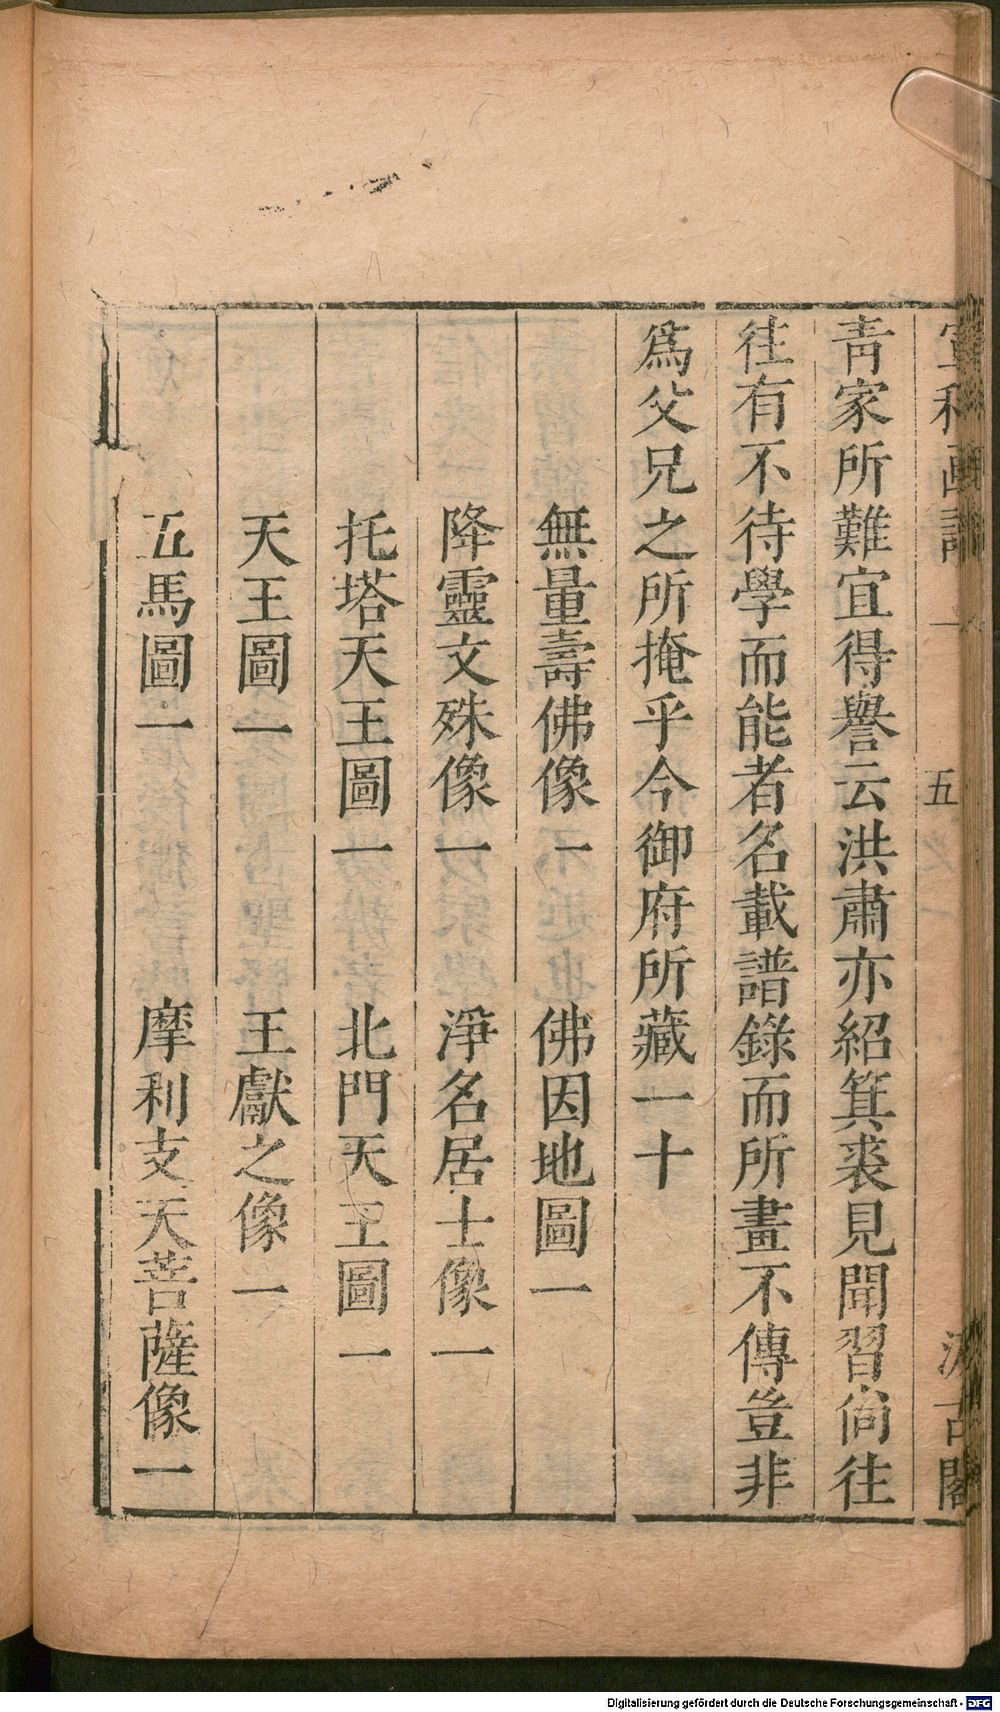 宣和画譜 一 五 汲古閣
青家所難宜得譽云洪肅亦紹箕裘見聞習尚往
往有不待學而能者名載譜錄而所畫不傳豈非
爲父兄之所掩乎今御府所藏一十
無量壽佛像一 佛因地圖一
降靈文殊像一 淨名居士像一
托塔天王圖一 北門天王圖一
天王圖一 王獻之像一
五馬圖一 摩利支天菩薩像一
Digitalisierung gefördert durch die Deutsche Forschungsgemeinschaft - DFG